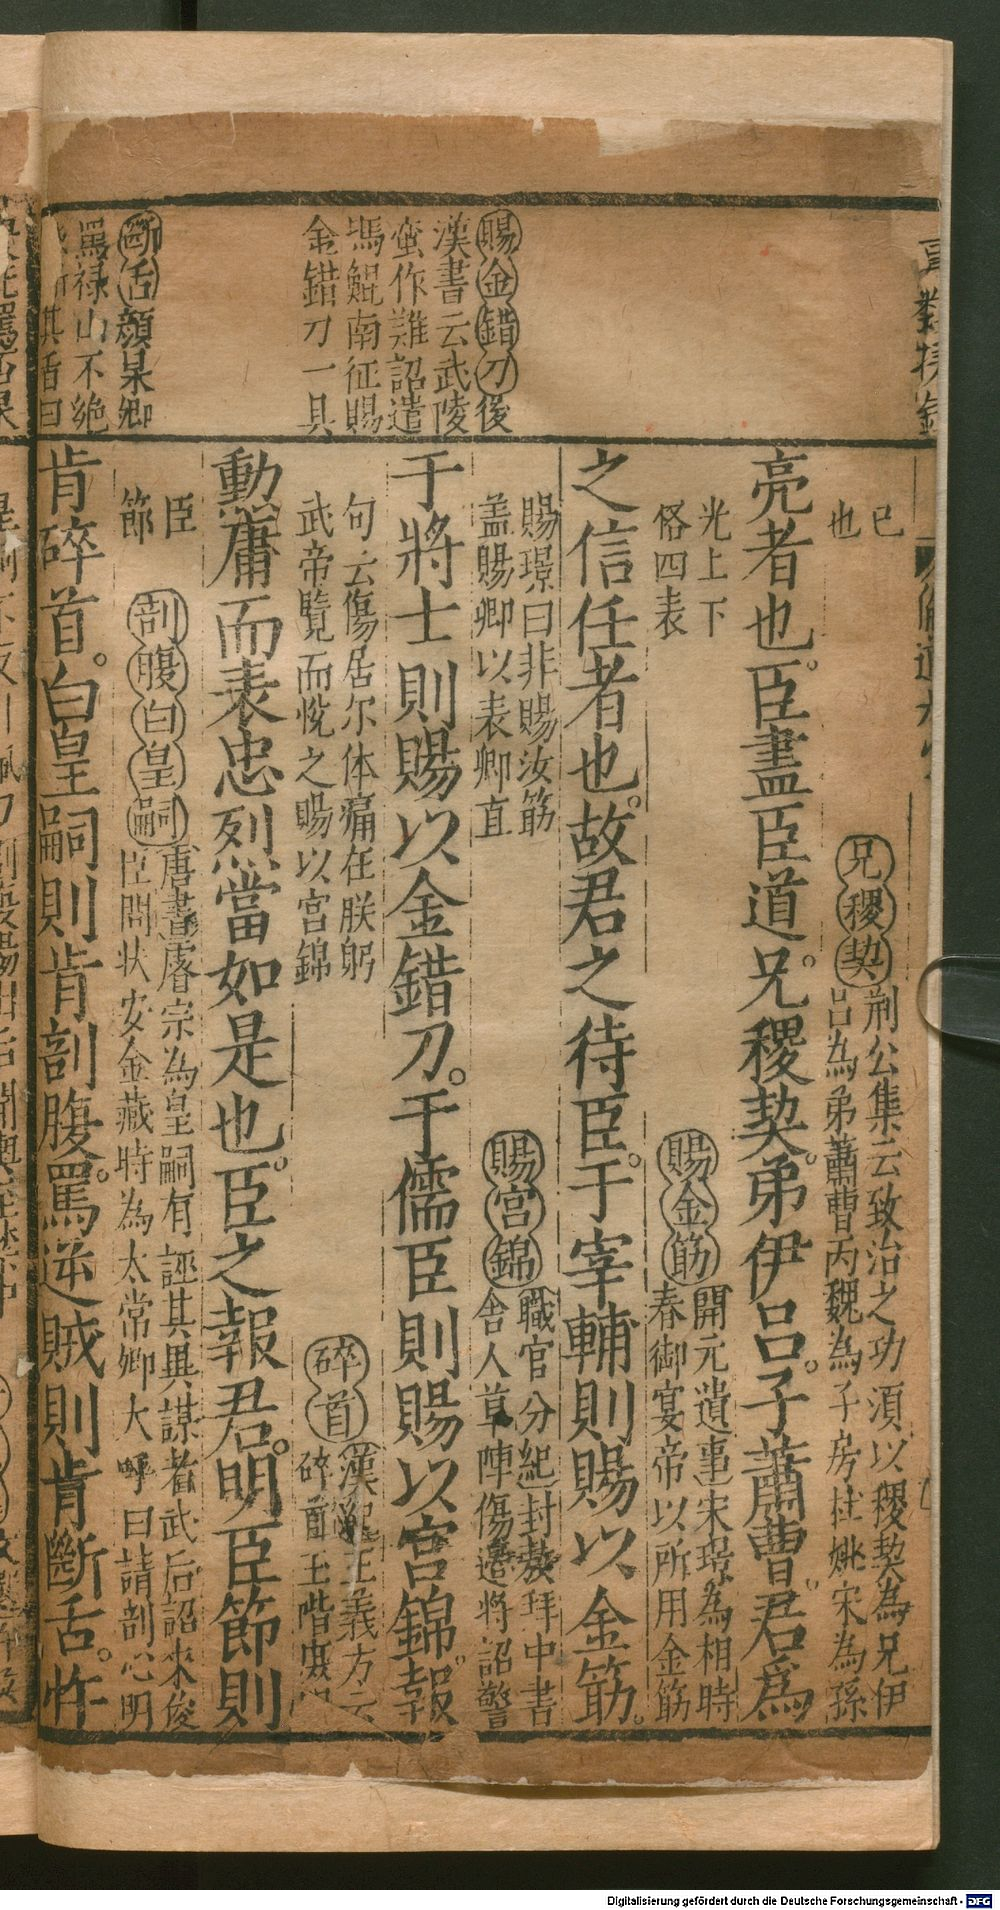 賜金錯刀後
漢書云武陵
蛮作難詔遣
馮鯤南征賜
金錯刀一具
斷舌顔杲卿
罵禄山不絶
其舌曰
已
也
兄稷契荆公集云致治之功須以稷契為兄伊
吕為弟蕭曹丙魏為子房杜姚宋為孫
亮者也。臣盡臣道。兄稷契。弟伊吕。子蕭曹。君為
光上下
俗四表
賜金筯開元遺事宋璟為相時
春御宴帝以所用金筯
之信任者也。故君之待臣。于宰輔則賜以金筯。
賜璟曰非賜汝筯
盖賜卿以表卿直
賜宫錦職官分紀封敖拜中書
舎人草陣傷邉将詔警
于將士則賜以金錯刀。于儒臣則賜以宫錦。報
句云傷居尔体痛在朕躬
武帝覽而悦之賜以宫錦
碎首漢王義方云
碎首玉階
勳庸而表忠烈當如是也。臣之報君。明臣節則
臣
節
剖腹白皇嗣唐書睿宗為皇嗣有誣其異謀者武后詔来俊
臣問状安金藏時為太常卿大呼曰請剖心明
肯碎首。白皇嗣則肯剖腹。罵逆賊則肯斷舌。忤
Digitalisierung gefördert durch die Deutsche Forschungsgemeinschaft - DFG